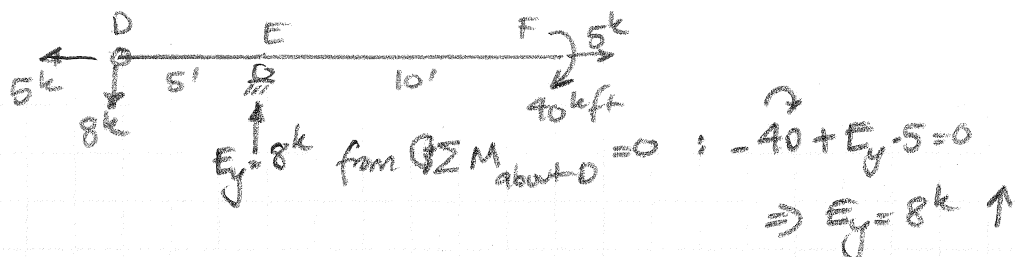 D E F 5ᵏ
5ᵏ 5' 10'
8ᵏ 40ᵏft
E_y = 8ᵏ from ΣM_about D = 0 : -40 + E_y·5 = 0
⇒ E_y = 8ᵏ ↑